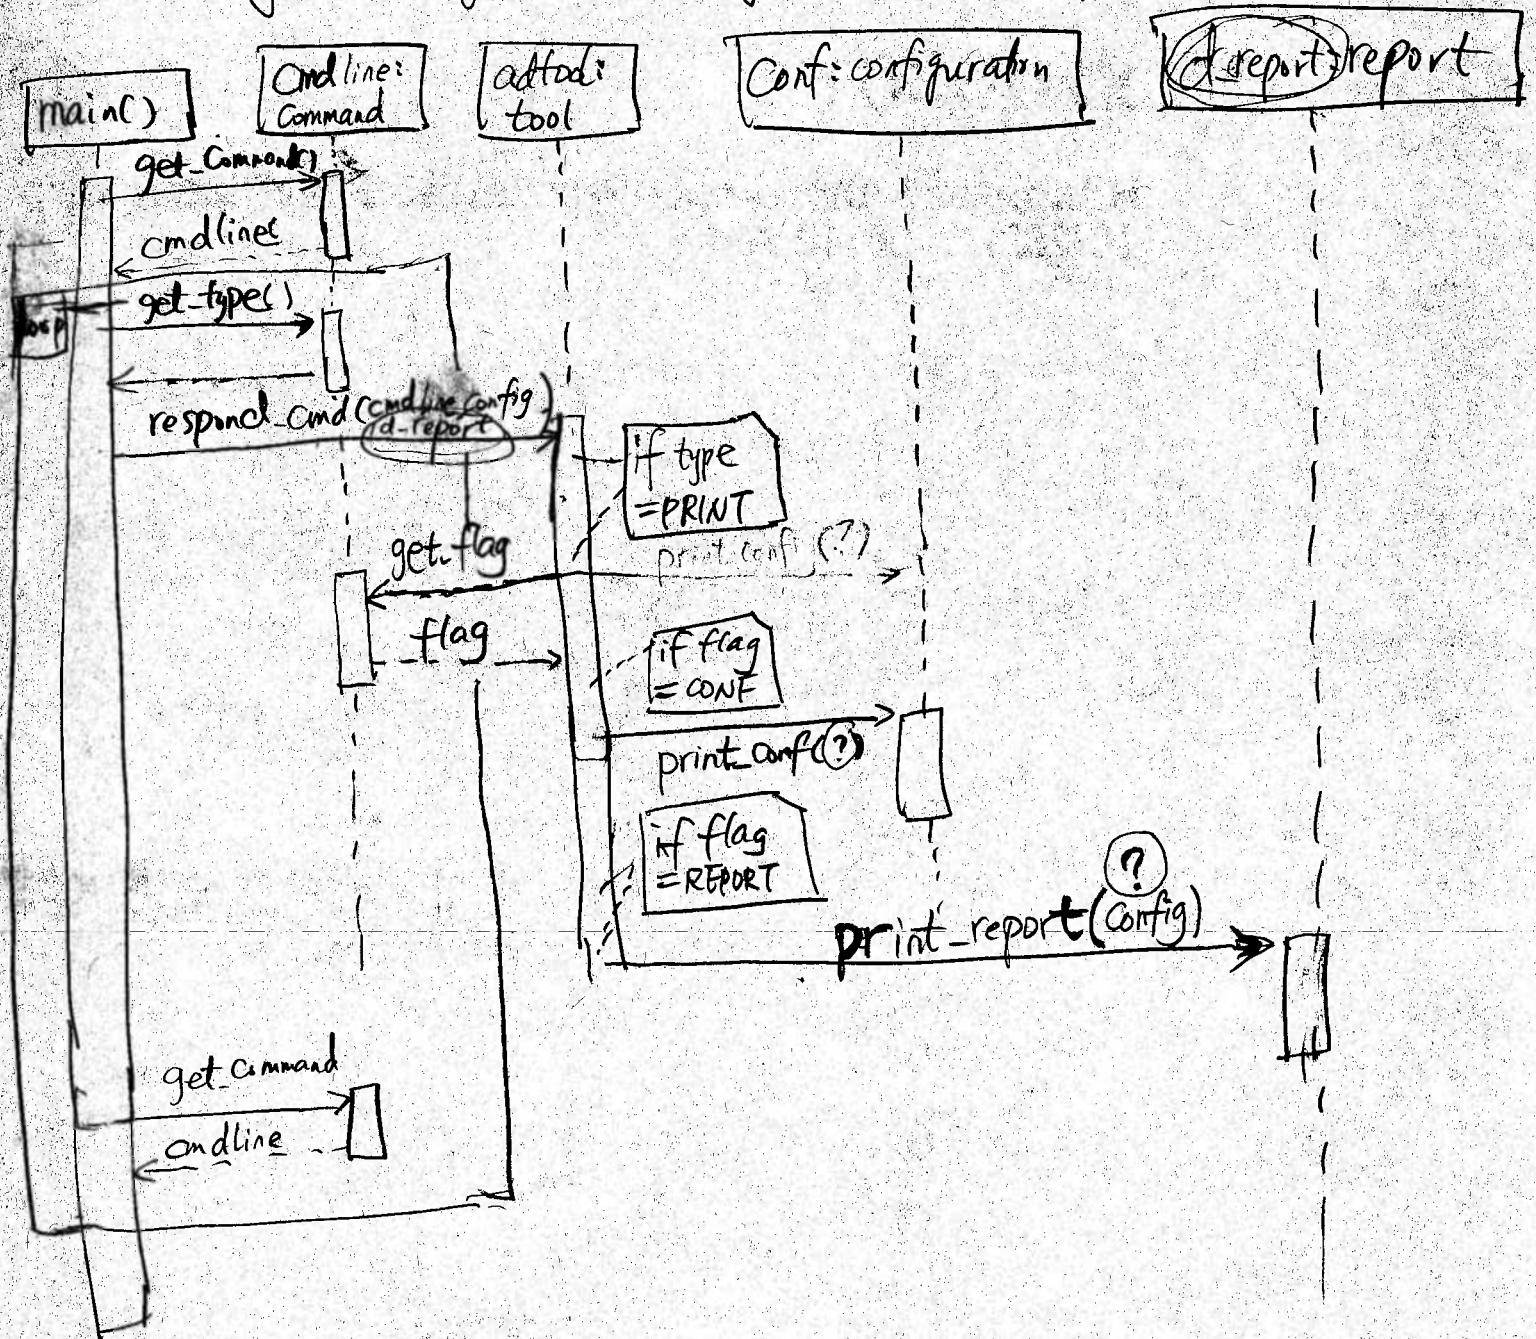 main()
Cmdline:
Command
adtool:
tool
Conf: configuration
d_report: report
get_Command()
cmdline(
loop
get_type()
respond_cmd(cmdline, config)
d-report
if type
=PRINT
print conf (?)
get_flag
flag
if flag
= CONF
print_conf(?)
if flag
=REPORT
?
print_report(Config)
get_Command
cmdline